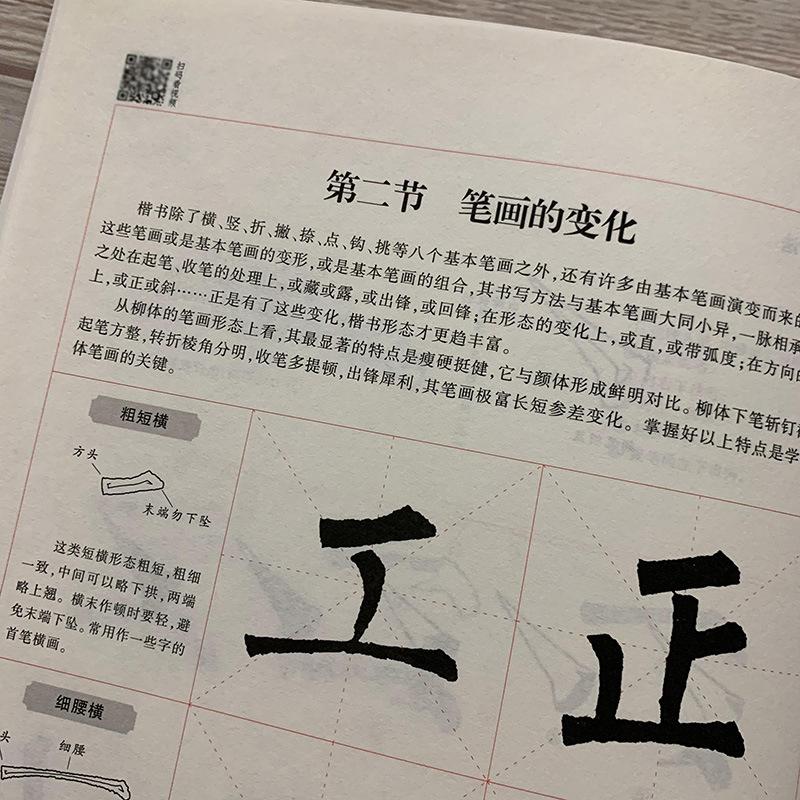 扫码看视频
第二节 笔画的变化
楷书除了横、竖、折、撇、捺、点、钩、挑等八个基本笔画之外，还有许多由基本笔画演变而来的
这些笔画或是基本笔画的变形，或是基本笔画的组合，其书写方法与基本笔画大同小异，一脉相承
之处在起笔、收笔的处理上，或藏或露，或出锋，或回锋；在形态的变化上，或直，或带弧度；在方向的
上，或正或斜……正是有了这些变化，楷书形态才更趋丰富。
从柳体的笔画形态上看，其最显著的特点是瘦硬挺健，它与颜体形成鲜明对比。柳体下笔斩钉
起笔方整，转折棱角分明，收笔多提顿，出锋犀利，其笔画极富长短参差变化。掌握好以上特点是学
体笔画的关键。
粗短横
方头
末端勿下坠
这类短横形态粗短，粗细
一致，中间可以略下拱，两端
略上翘。横末作顿时要轻，避
免末端下坠。常用作一些字的
首笔横画。
工
正
细腰横
头
细腰